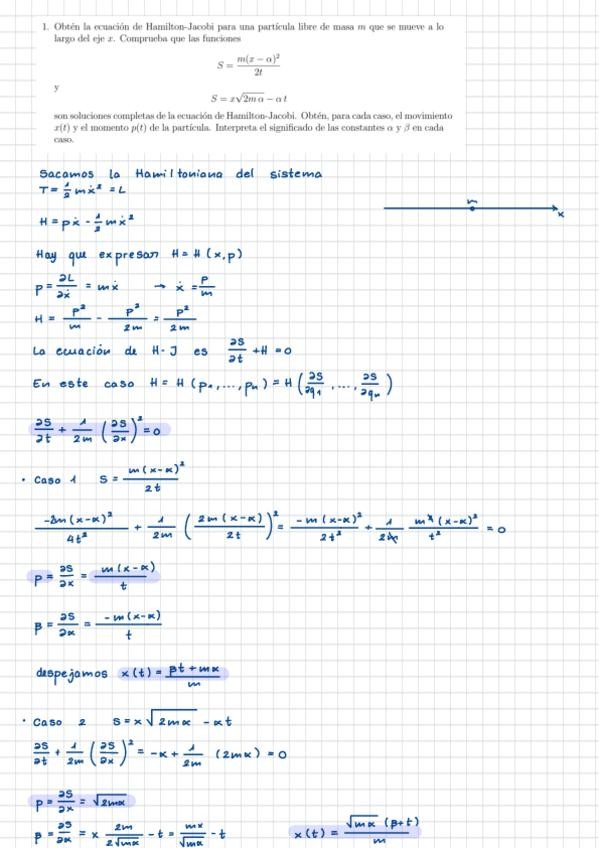 1. Obtén la ecuación de Hamilton-Jacobi para una partícula libre de masa m que se mueve a lo
largo del eje x. Comprueba que las funciones
S = m(x − α)² / 2t
y
S = x√(2mα) − α t
son soluciones completas de la ecuación de Hamilton-Jacobi. Obtén, para cada caso, el movimiento
x(t) y el momento p(t) de la partícula. Interpreta el significado de las constantes α y β en cada
caso.
Sacamos la Hamiltoniana del sistema
T = 1/2 mẋ² = L
m
x
H = pẋ - 1/2 mẋ²
Hay que expresar H = H (x,p)
p = ∂L/∂ẋ = mẋ → ẋ = p/m
H = p²/m - p²/2m = p²/2m
La ecuación de H-J es ∂S/∂t + H = 0
En este caso H = H (p₁,...,pₙ) = H (∂S/∂q₁, ..., ∂S/∂qₙ)
∂S/∂t + 1/2m (∂S/∂x)² = 0
• Caso 1 S = m(x-α)²/2t
-2m(x-α)²/4t² + 1/2m (2m(x-α)/2t)² = -m(x-α)²/2t² + 1/2m m²(x-α)²/t² = 0
p = ∂S/∂x = m(x-α)/t
β = ∂S/∂α = -m(x-α)/t
despejamos x(t) = βt + mα/m
• Caso 2 S = x√(2mα) - αt
∂S/∂t + 1/2m (∂S/∂x)² = -α + 1/2m (2mα) = 0
p = ∂S/∂x = √(2mα)
β = ∂S/∂α = x 2m/2√(mα) - t = mx/√(mα) - t x(t) = √(mα) (β+t)/m